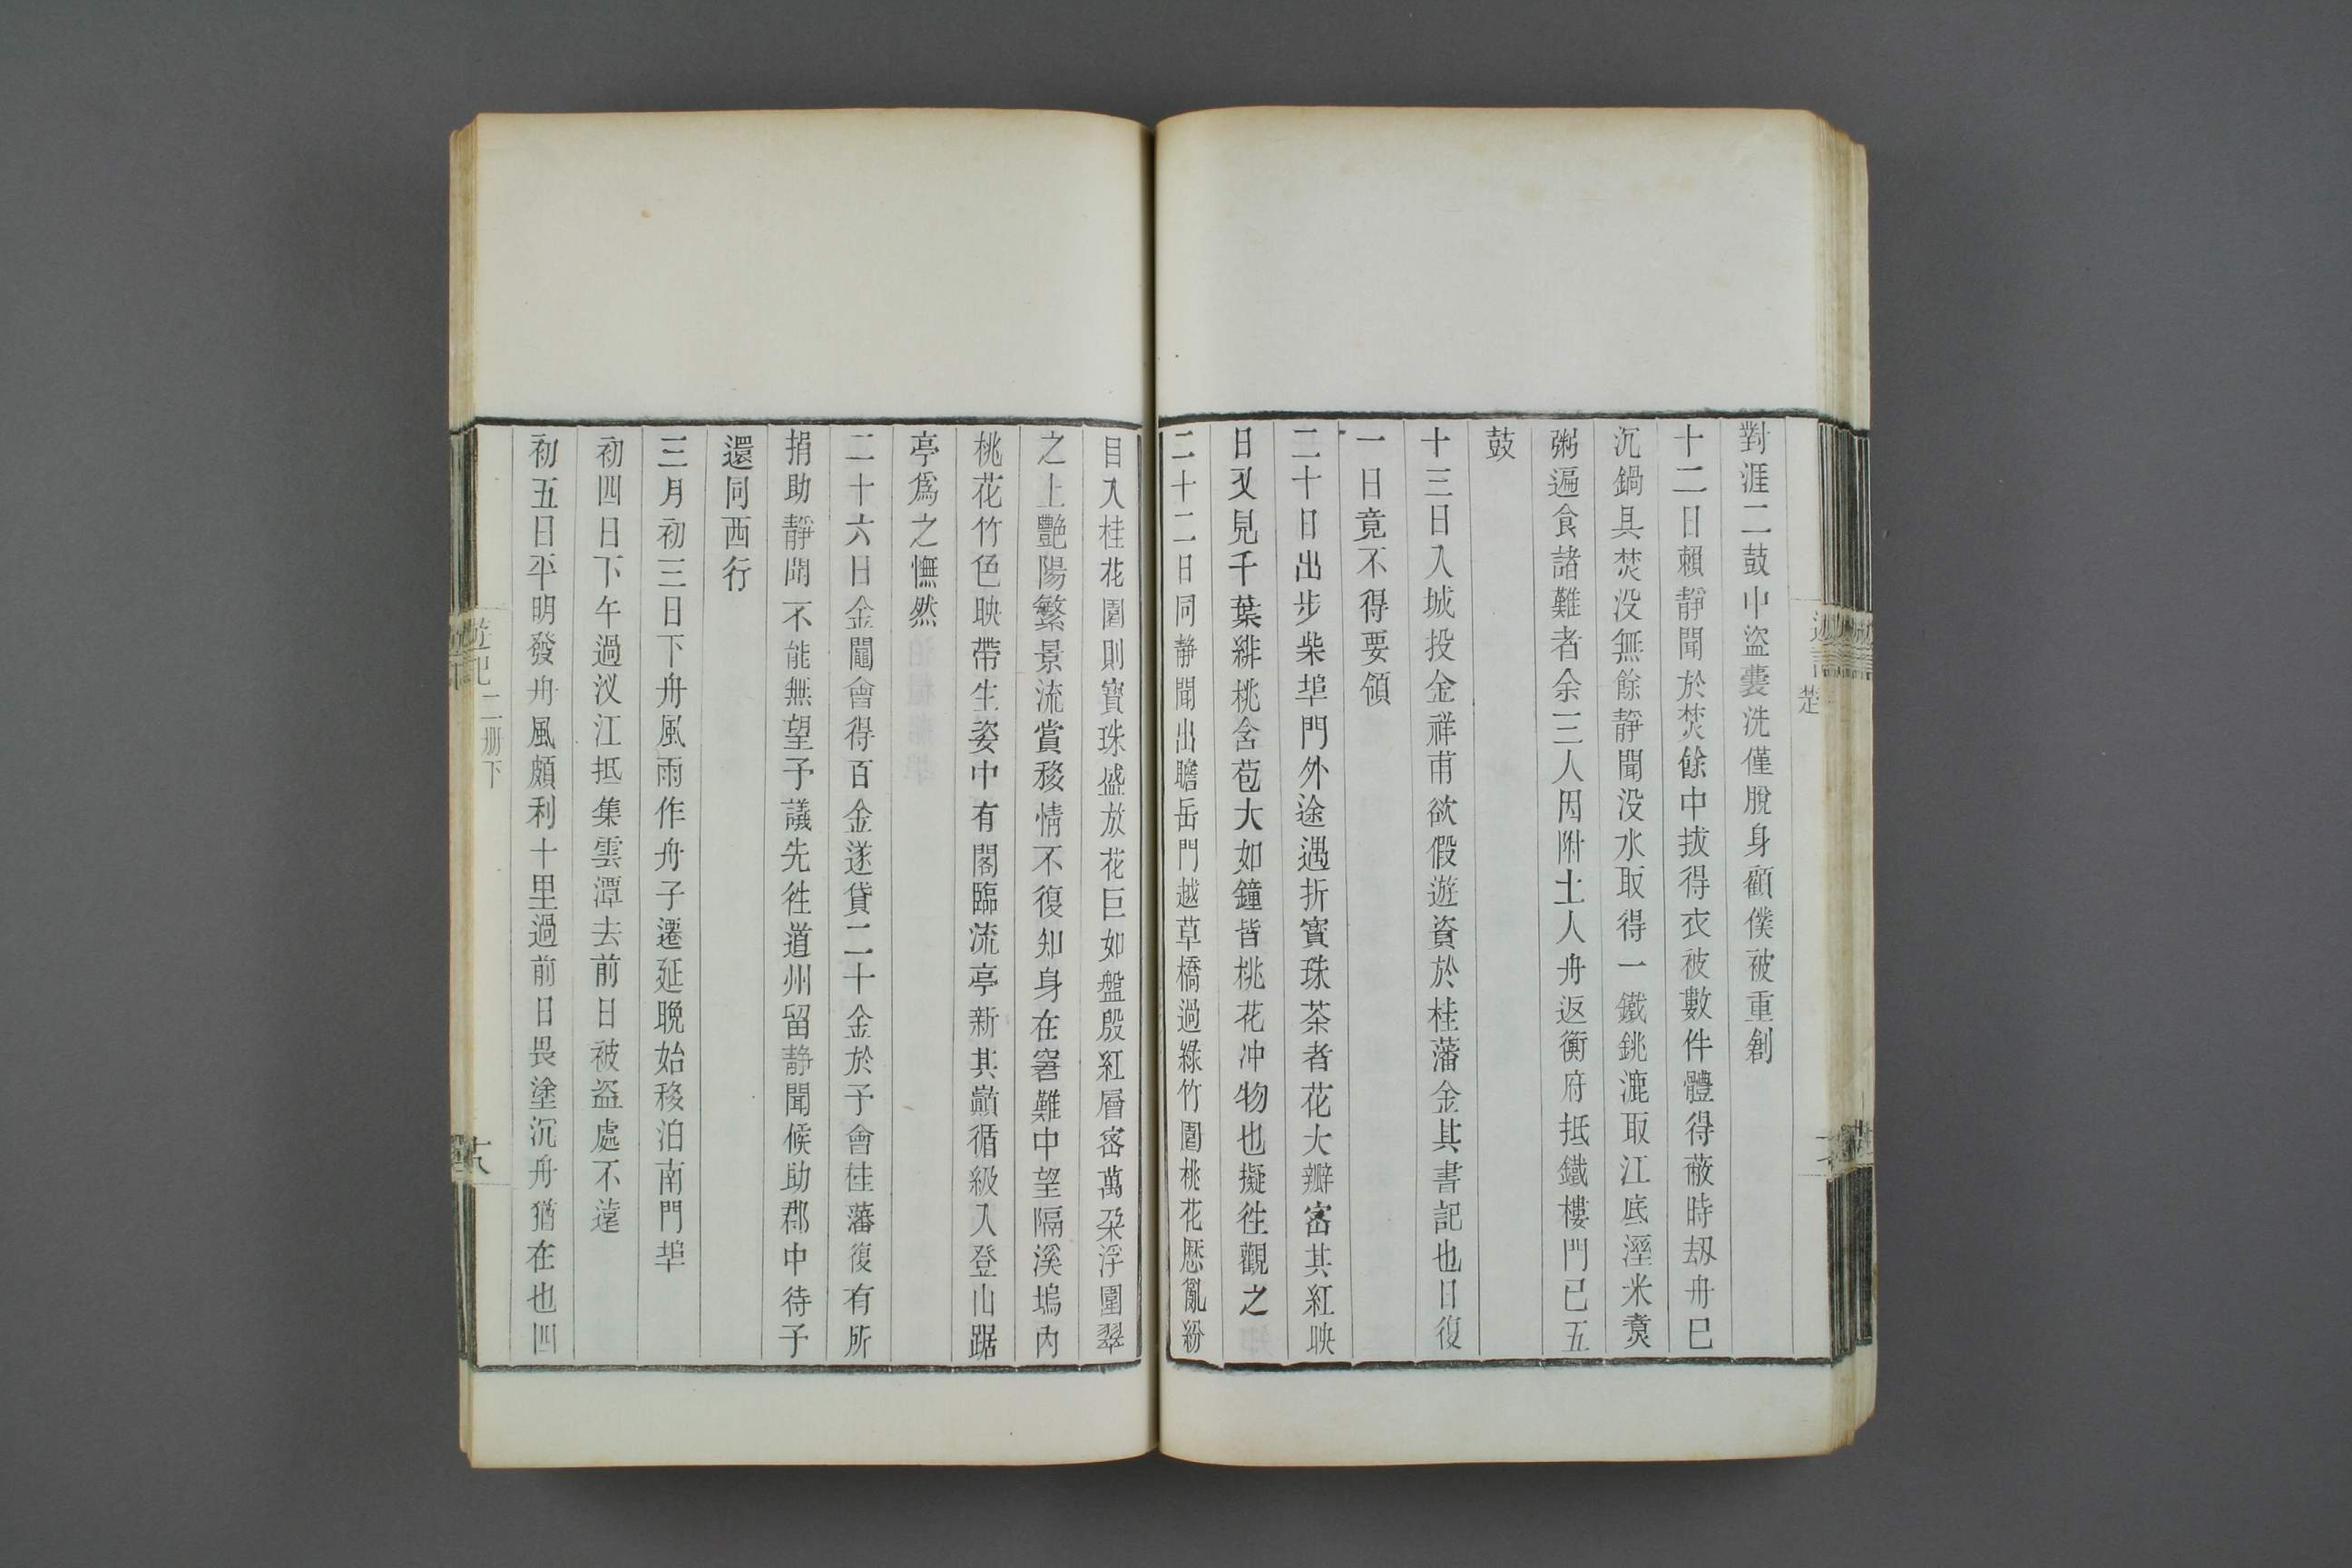 對涯二鼓中盜妻洗僅脫身顧僕被重創
十二日賴靜聞於焚餘中拔得衣被數件體得蔽時刼舟巳
沉鍋具焚没無餘靜聞没水取得一鐵銚漉取江底溼米煑
粥遍食諸難者余三人因附土人舟返衡府抵鐵樓門已五
鼓
十三日入城投金祥甫欲假遊資於桂藩金其書記也日復
一日竟不得要領
二十日出步柴埠門外途遇折寳珠茶者花大瓣宻其紅映
日又見千葉緋桃含苞大如鐘皆桃花冲物也擬徃觀之
二十二日同靜聞出瞻岳門越草橋過綠竹園桃花厯亂紛
目入桂花園則寳珠盛放花巨如盤殷紅層宻萬朶浮圍翠
之上艷陽繁景流賞移情不復知身在窘難中望隔溪塢内
桃花竹色映帶生姿中有閣臨流亭新其巔循級入登山踞
亭爲之憮然
二十六日金鬮會得百金遂貸二十金於予會桂藩復有所
捐助靜聞不能無望予議先徃道州留靜聞候助郡中待予
還同西行
三月初三日下舟風雨作舟子遷延晚始移泊南門埠
初四日下午過汊江抵集雲潭去前日被盜處不遠
初五日平明發舟風頗利十里過前日畏塗沉舟猶在也四
遊記二册下
十八